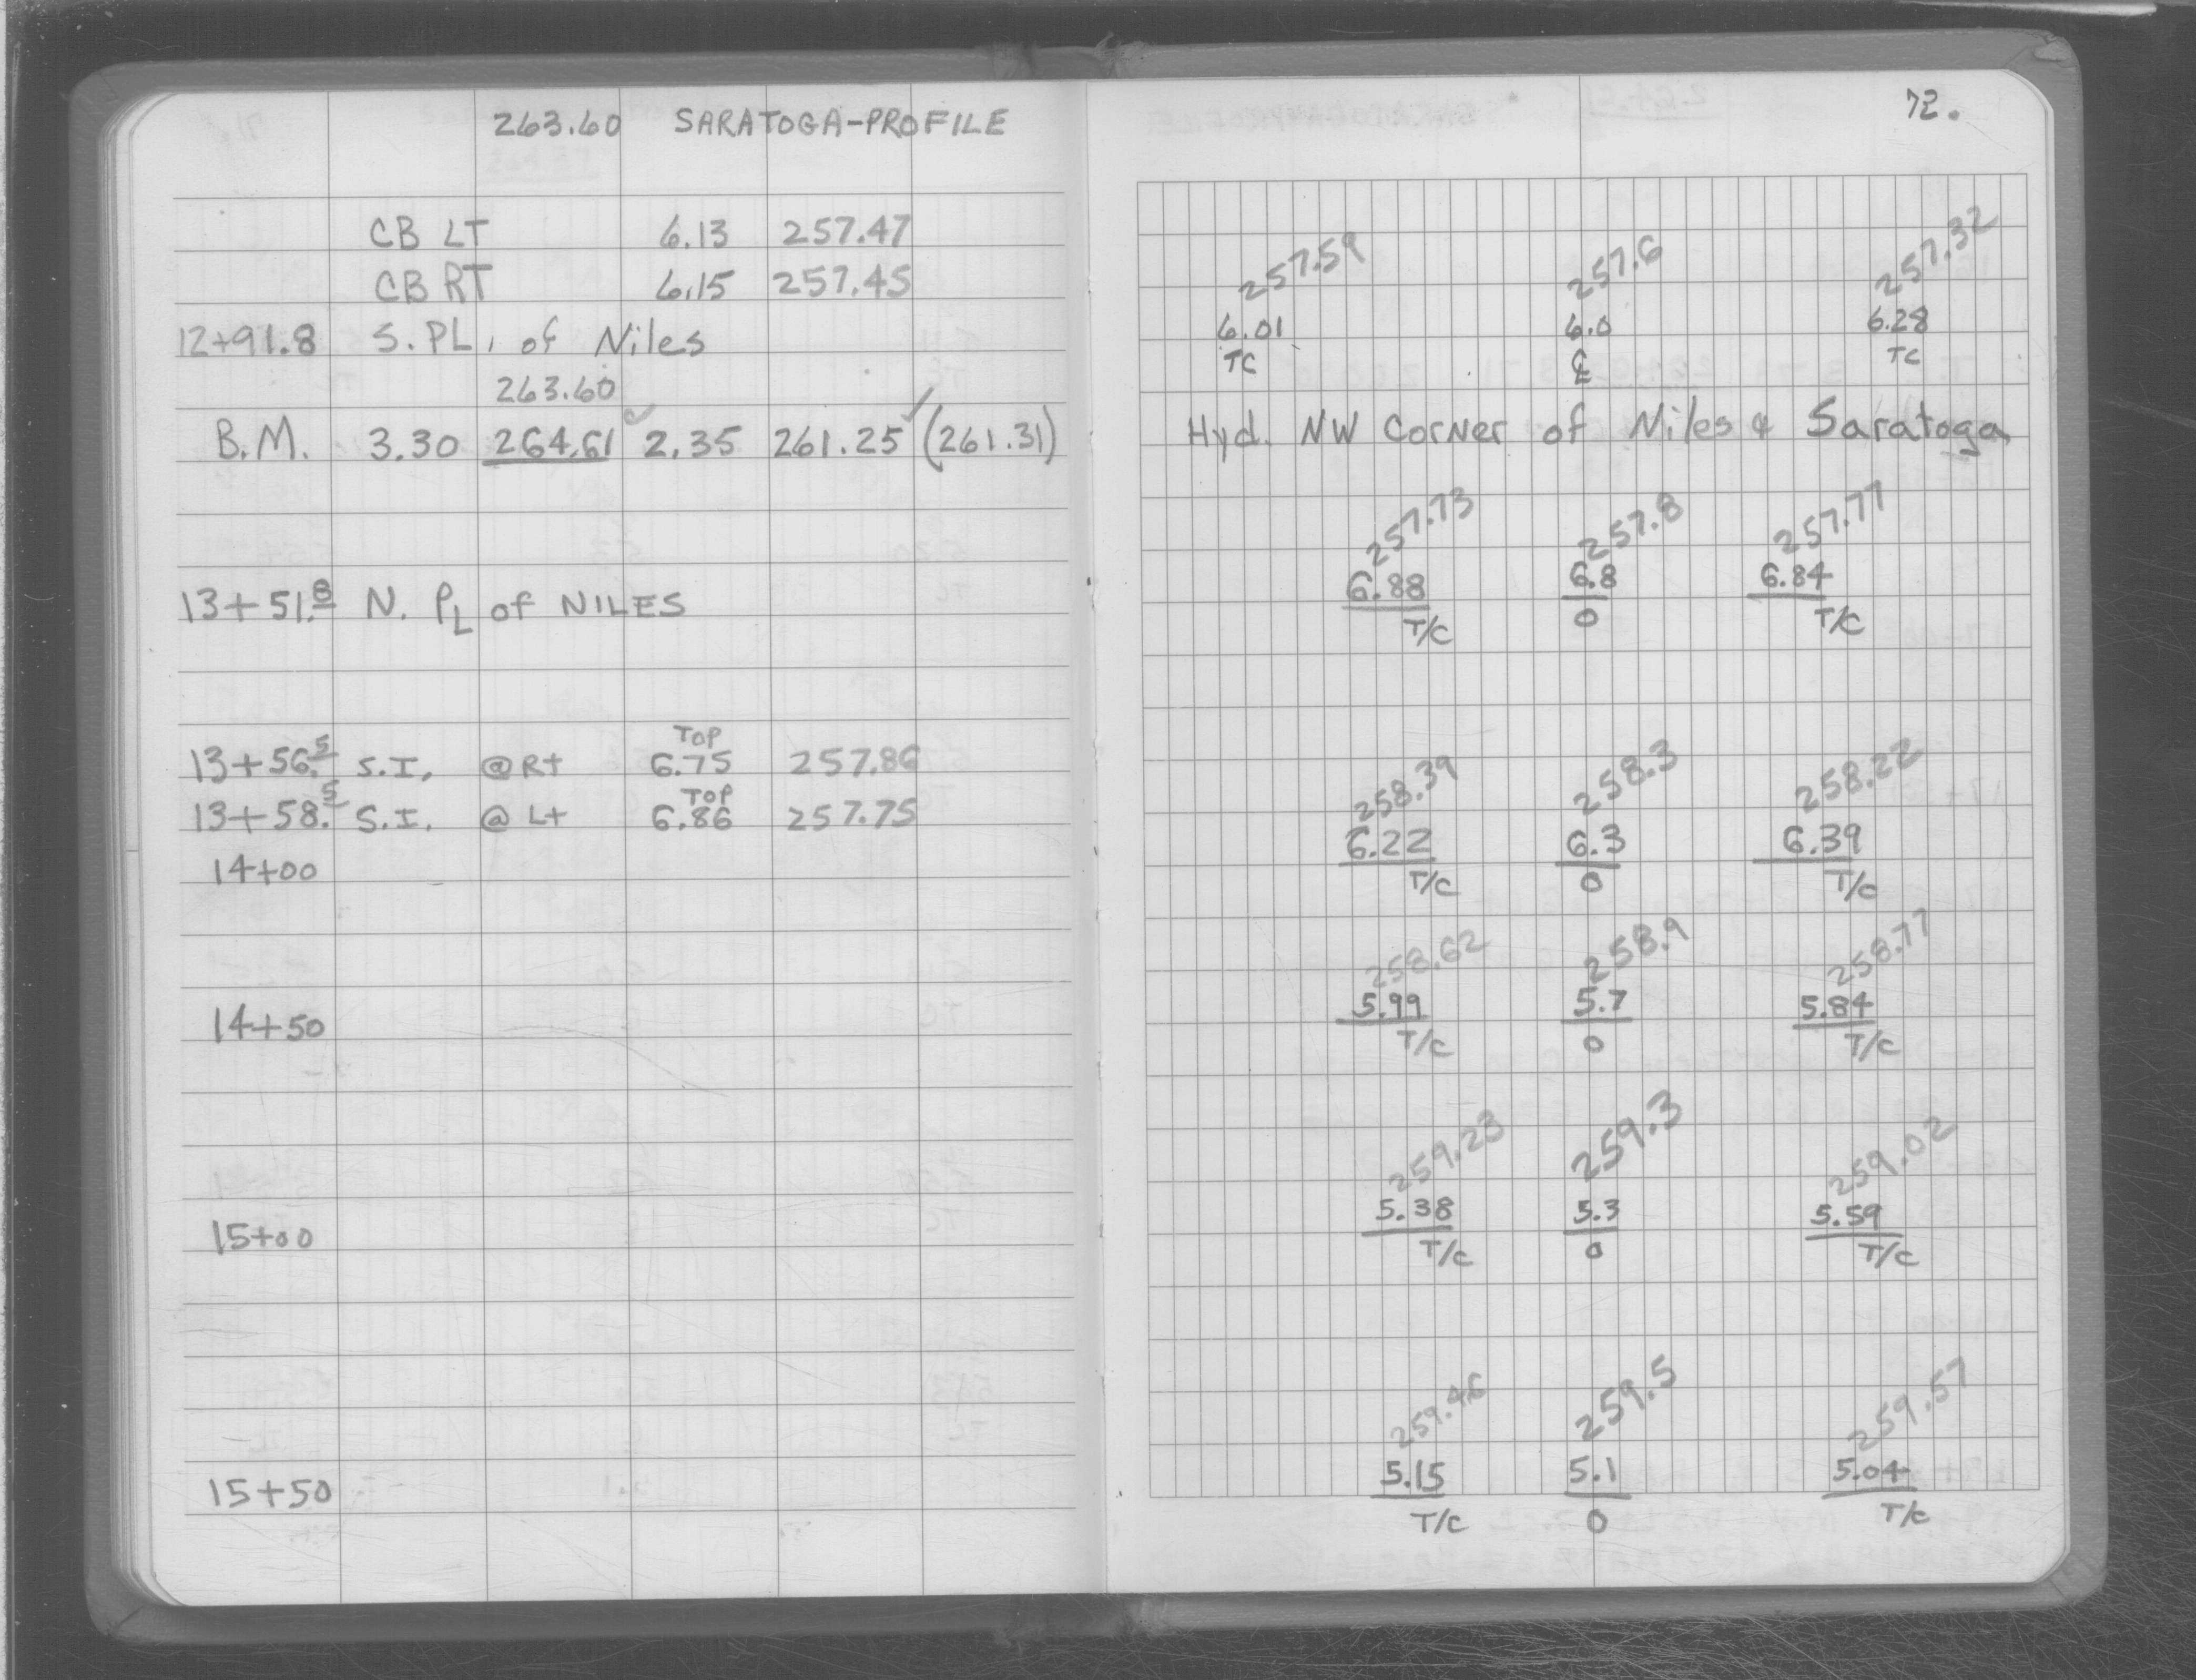 263.60 SARATOGA-PROFILE
CB LT 6.13 257.47
CB RT 6.15 257.45
12+91.8 S. PL. of Niles
263.60
B.M. 3.30 264.61 ✓ 2.35 261.25 ✓ (261.31)
13+51.8 N. PL of NILES
TOP
13+56.5 S.I. @ Rt 6.75 257.86
TOP
13+58.5 S.I. @ Lt 6.86 257.75
14+00
14+50
15+00
15+50
72.
257.59 257.6 257.32
6.01 6.0 6.28
TC ℄ TC
Hyd. NW Corner of Niles & Saratoga
257.73 257.8 257.77
6.88 6.8 6.84
T/C 0 T/C
258.39 258.3 258.22
6.22 6.3 6.39
T/C 0 T/C
258.62 258.9 258.77
5.99 5.7 5.84
T/C 0 T/C
259.23 259.3 259.02
5.38 5.3 5.59
T/C 0 T/C
259.46 259.5 259.57
5.15 5.1 5.04
T/C 0 T/C